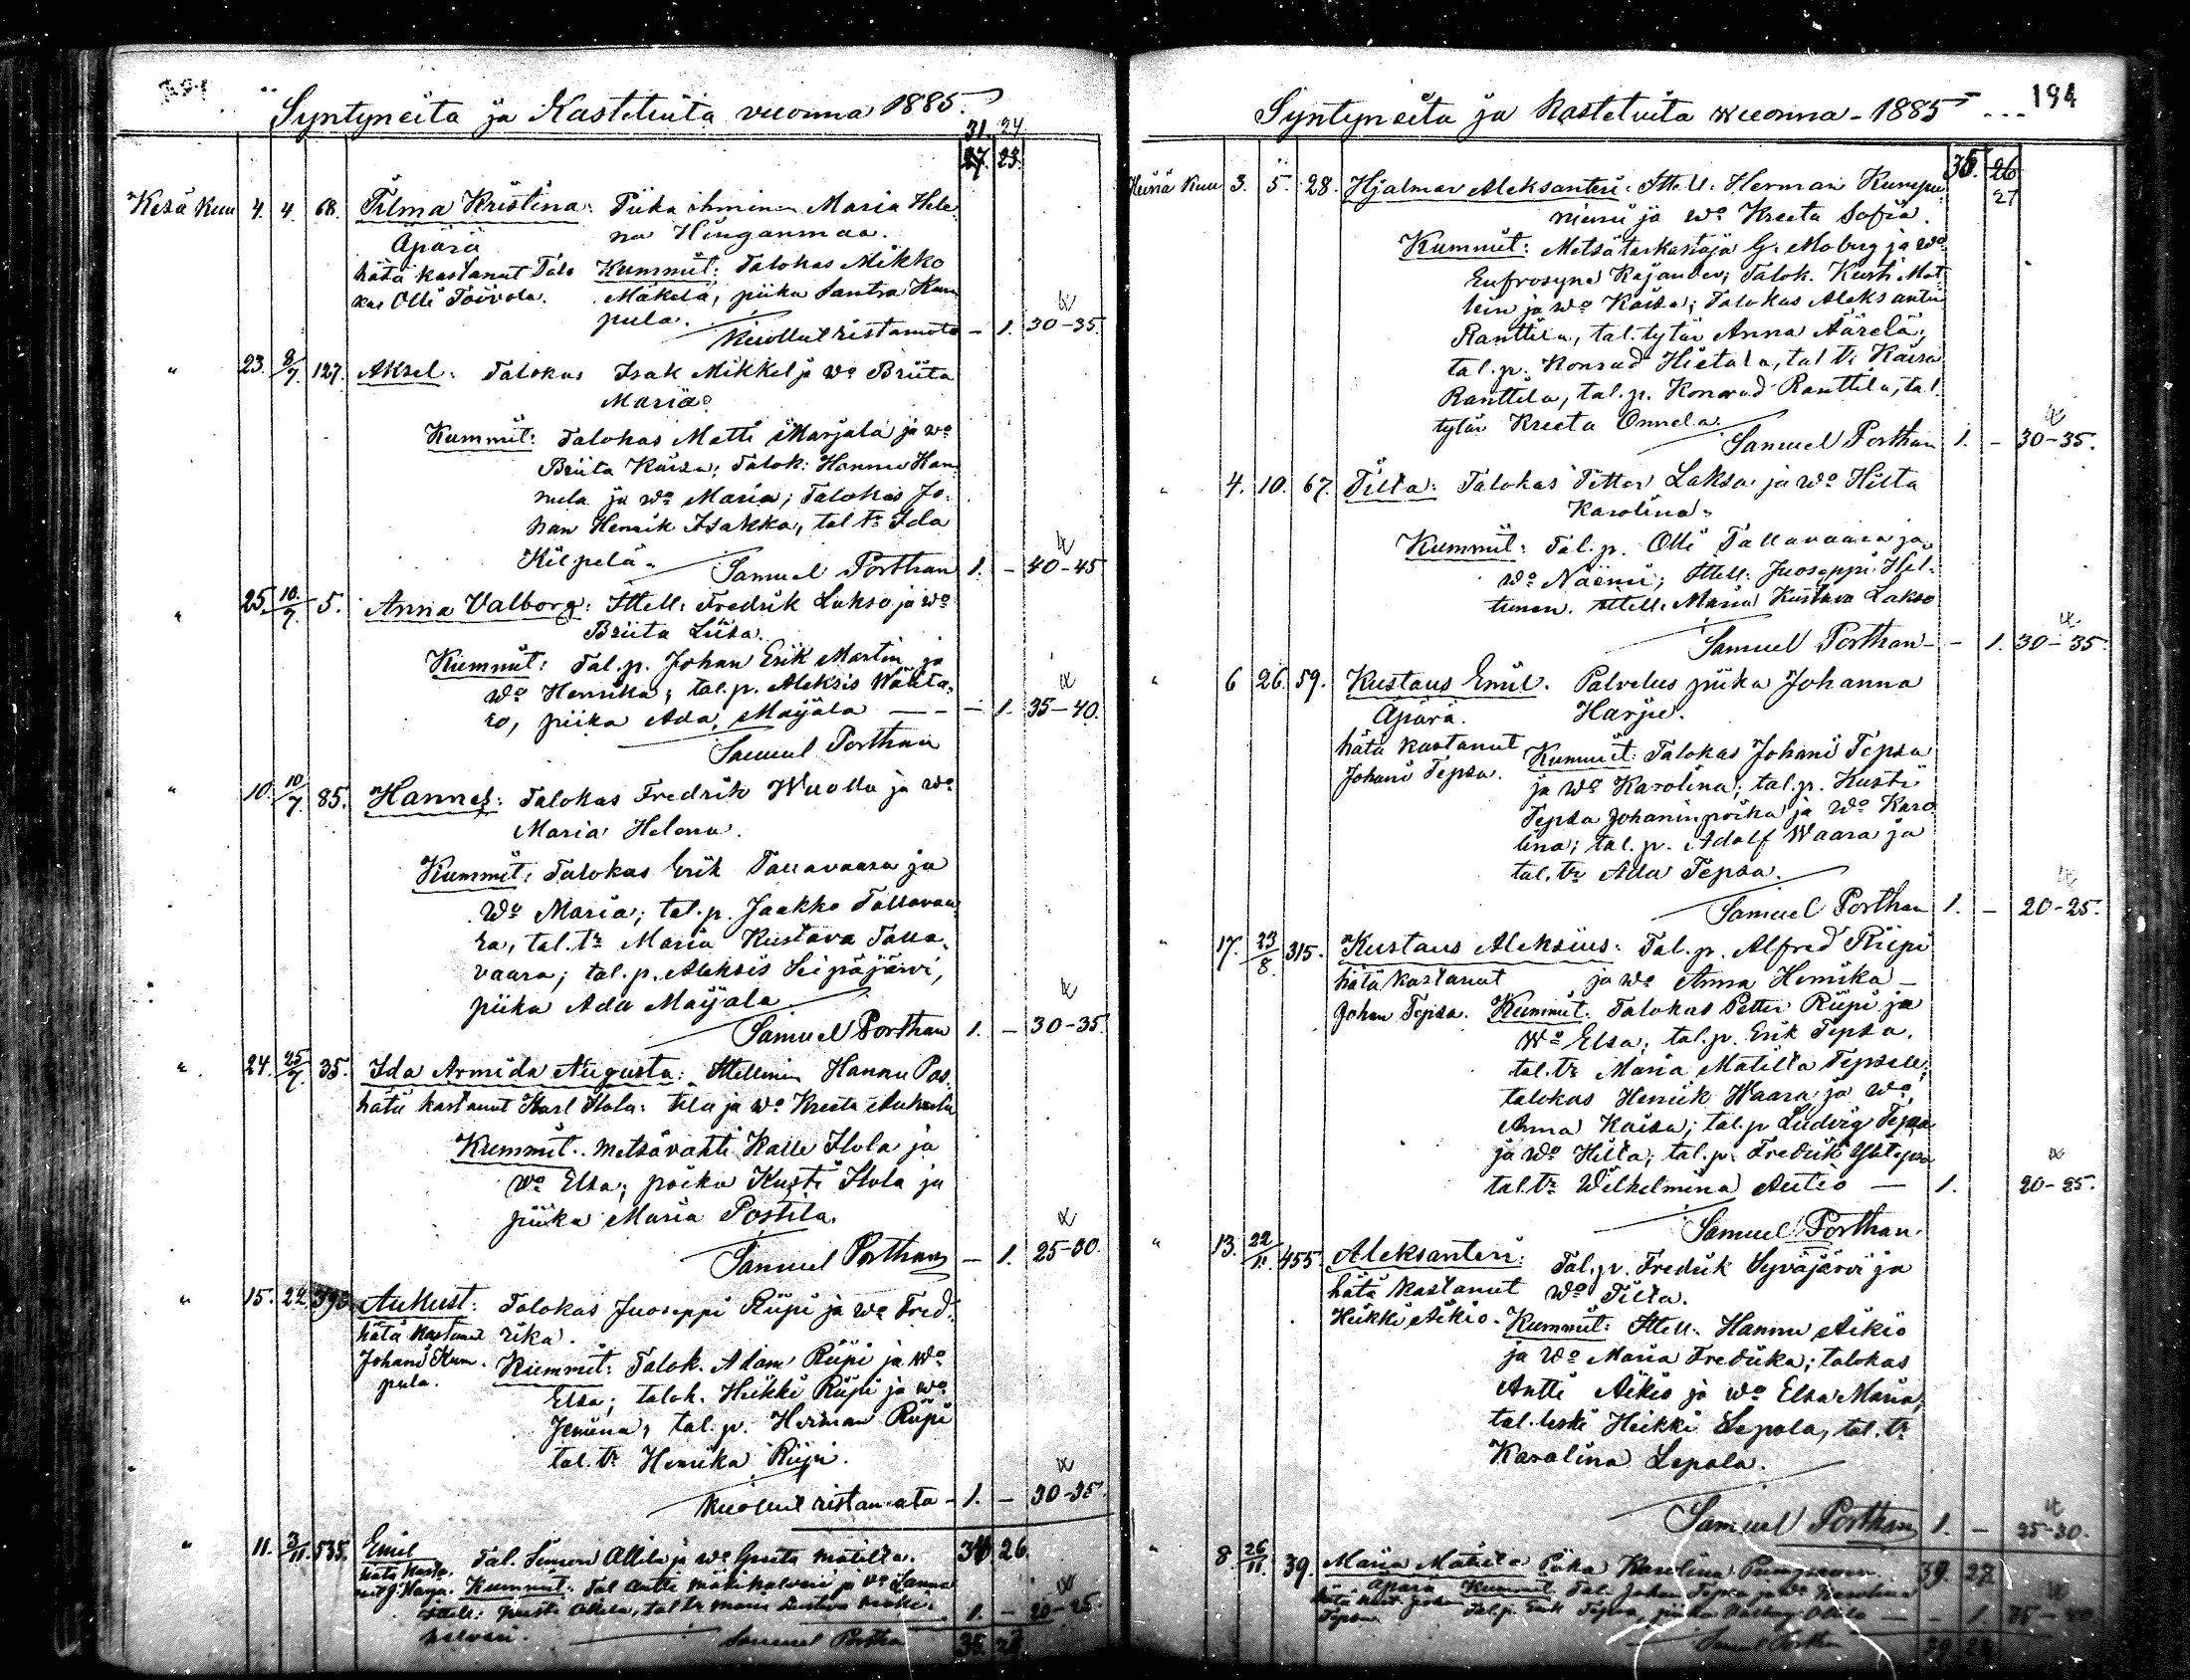 Syntyneitä ja Kastetuita vuonna 1885.
31. 24
27. 23.
Kesä Kuu 4. 4. 68. Tilma Kristina: Piika ihminen Maria Hele
Äpärä na Hinganmaa.
hätä kastanut Talo Kummit: Talokas Mikko
kas Olli Toivola. Mäkelä, piika Santra Kum
pula.
Kuollut ristamata - 1. 30-35.
" 23. 8/7. 127. Aksel: Talokas Isak Mikkel ja Wo Briita
Maria.
Kummit: Talokas Matti Marjala ja wo
Briita Kaisa; Talok: Hannu Han
nula ja wo Maria; Talokas Jo=
han Henrik Isakka, tal tr Ida
Kilpelä.
Samuel Porthan 1. - 40-45
" 25. 10./7 5. Anna Valborg: Ittell: Fredrik Lakso ja wo
Briita Liisa.
Kummit: Tal. p. Johan Erik Martin ja
Wo Henrika; tal. p. Aleksis Wääta=
ro, piika Ada Maijala - 1. 35-40.
Samuel Porthan
" 10. 10/7. 85. Hannes: Talokas Fredrik Wuolla ja Wo
Maria Helena.
Kummit: Talokas Erik Tallavaara ja
Wo Maria; tal. p. Jaakko Tallavaa
ra, tal. tr Maria Kustava Talla=
vaara; tal. p. Aleksis Seipäjärvi,
piika Ada Maijala
Samuel Porthan 1. - 30-35.
" 24. 25/7. 35. Ida Armida Augusta: Ittellinen Hannu Pos
hätä kastanut Karl Ilola: tila ja Wo Kreeta
Kummit: metsävahti Kalle Ilola ja
Wo Elsa; poika Kusti Ilola ja
piika Maria Postila.
Samuel Porthan - 1. 25-30.
" 15. 22 393 Aukust: Talokas Juoseppi Riipi ja wo Fred=
hätä kastanut rika.
Johani Kum Kummit: Talok. Adam Riipi ja Wo
pula. Elsa; talok. Heikki Riipi ja wo
Jemina; tal. p. Herman Riipi
tal. tr Henrika Riipi.
Kuollut ristamata - 1. - 30-35.
" 11. 3/11. 535. Emil Tal. Simon Ollila ja Wo Greeta Matilta. 34 26.
hätä kasta
nut J. Harju. Kummit: Tal Antti ja Wo Sanna
Ittell: Kusti Ollila, tal tr Maria Kustava 1. - 20-25.
Samuel Porthan 35.
Syntyneitä ja Kastetuita wuonna - 1885 194
35. 26
27
Heinä Kuu 3. 5. 28. Hjalmar Aleksanteri: Ittell: Herman Kumpu
niemi ja Wo Kreeta Sofia.
Kummit: Metsätarkastaja G. Moberg ja Wo
Eufrosyne Kajander; Talok. Kusti Mat
hein ja Wo Kaisa; Talokas Aleksanteri
Ranttila, tal. tytär Anna Äärelä;
tal. p. Konrad Hietala, tal tr Kaisa
Ranttila, tal. p. Konrad Ranttila, tal
tytär Kreeta Onnela.
Samuel Porthan 1. - 30-35.
" 4. 10. 67. Tilta: Talokas Petter Laksa ja Wo Hilta
Karolina.
Kummit: Tal. p. Olli Tallavaara ja
Wo Naemi; Ittell: Juoseppi Hel=
tunen. Ittell. Maria Kustava Lakso
Samuel Porthan - 1. 30-35.
" 6 26. 59. Kustaus Emil. Palvelus piika Johanna
Äpärä. Harju.
hätä kastanut Kummit: Talokas Johani Tepsa
Johani Tepsa. ja Wo Karolina; tal. p. Kusti
Tepsa Johaninpoika ja Wo Karo
lina; tal. p. Adolf Waara ja
tal. tr Ada Tepsa.
Samuel Porthan 1. - 20-25.
" 17. 23/8. 315. Kustaus Aleksius: Tal. p. Alfred Riipi
hätä kastanut ja Wo Anna Henrika
Johan Tepsa. Kummit: Talokas Petter Riipi ja
Wo Elsa; tal. p. Erik Tepsa,
tal. tr Maria Matilta Tepsell;
talokas Henrik Waara ja Wo
Anna Kaisa; tal. p Ludvig Tepsa
ja Wo Hilta; tal. p. Fredrik
tal. tr Wilhelmina Autio - 1. 20-25.
Samuel Porthan.
" 13. 22/11. 455. Aleksanteri: Tal. p. Fredrik Syväjärvi ja
hätä kastanut Wo Tilta.
Heikki Aikio. Kummit: Ittell. Hannu Aikio
ja Wo Maria Fredrika; talokas
Antti Aikio ja Wo Elsa Maria;
tal. leski Heikki Lepola, tal. tr
Karolina Lepola.
Samuel Porthan 1. - 25-30.
" 8. 26/11. 39. Maria Matilta Piika Karolina 39. 27
Äpärä Kummit Tal. Johan Tepsa ja Wo Karolina
hätä kast. Johan Tal. p. Erik Tepsa, piika
Tepsa. - 1.
Samuel Porthan